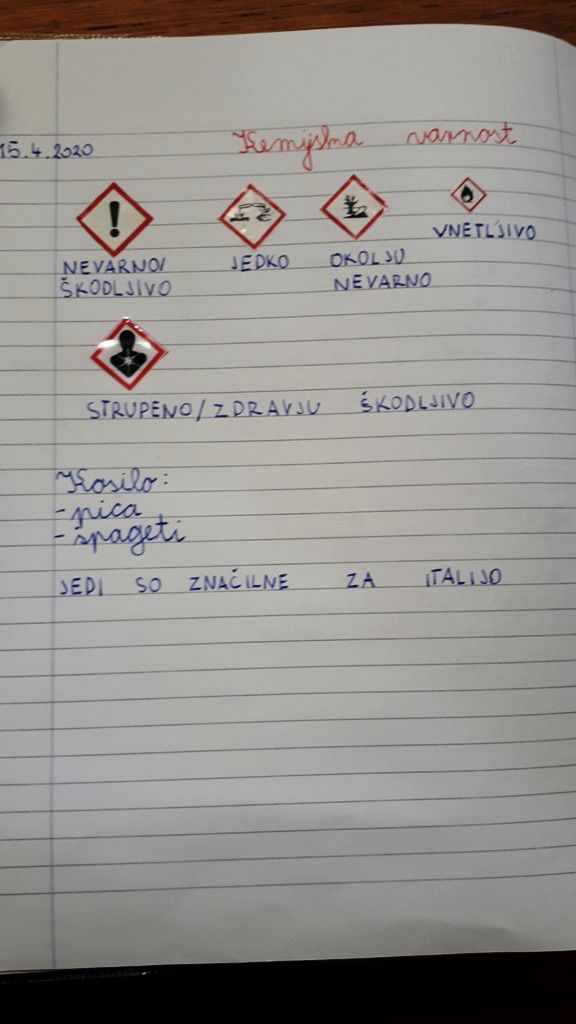 15.4.2020
Kemijska varnost
NEVARNO/
ŠKODLJIVO
JEDKO
OKOLJU
NEVARNO
VNETLJIVO
STRUPENO/ZDRAVJU ŠKODLJIVO
Kosilo:
- pica
- špageti
JEDI SO ZNAČILNE ZA ITALIJO